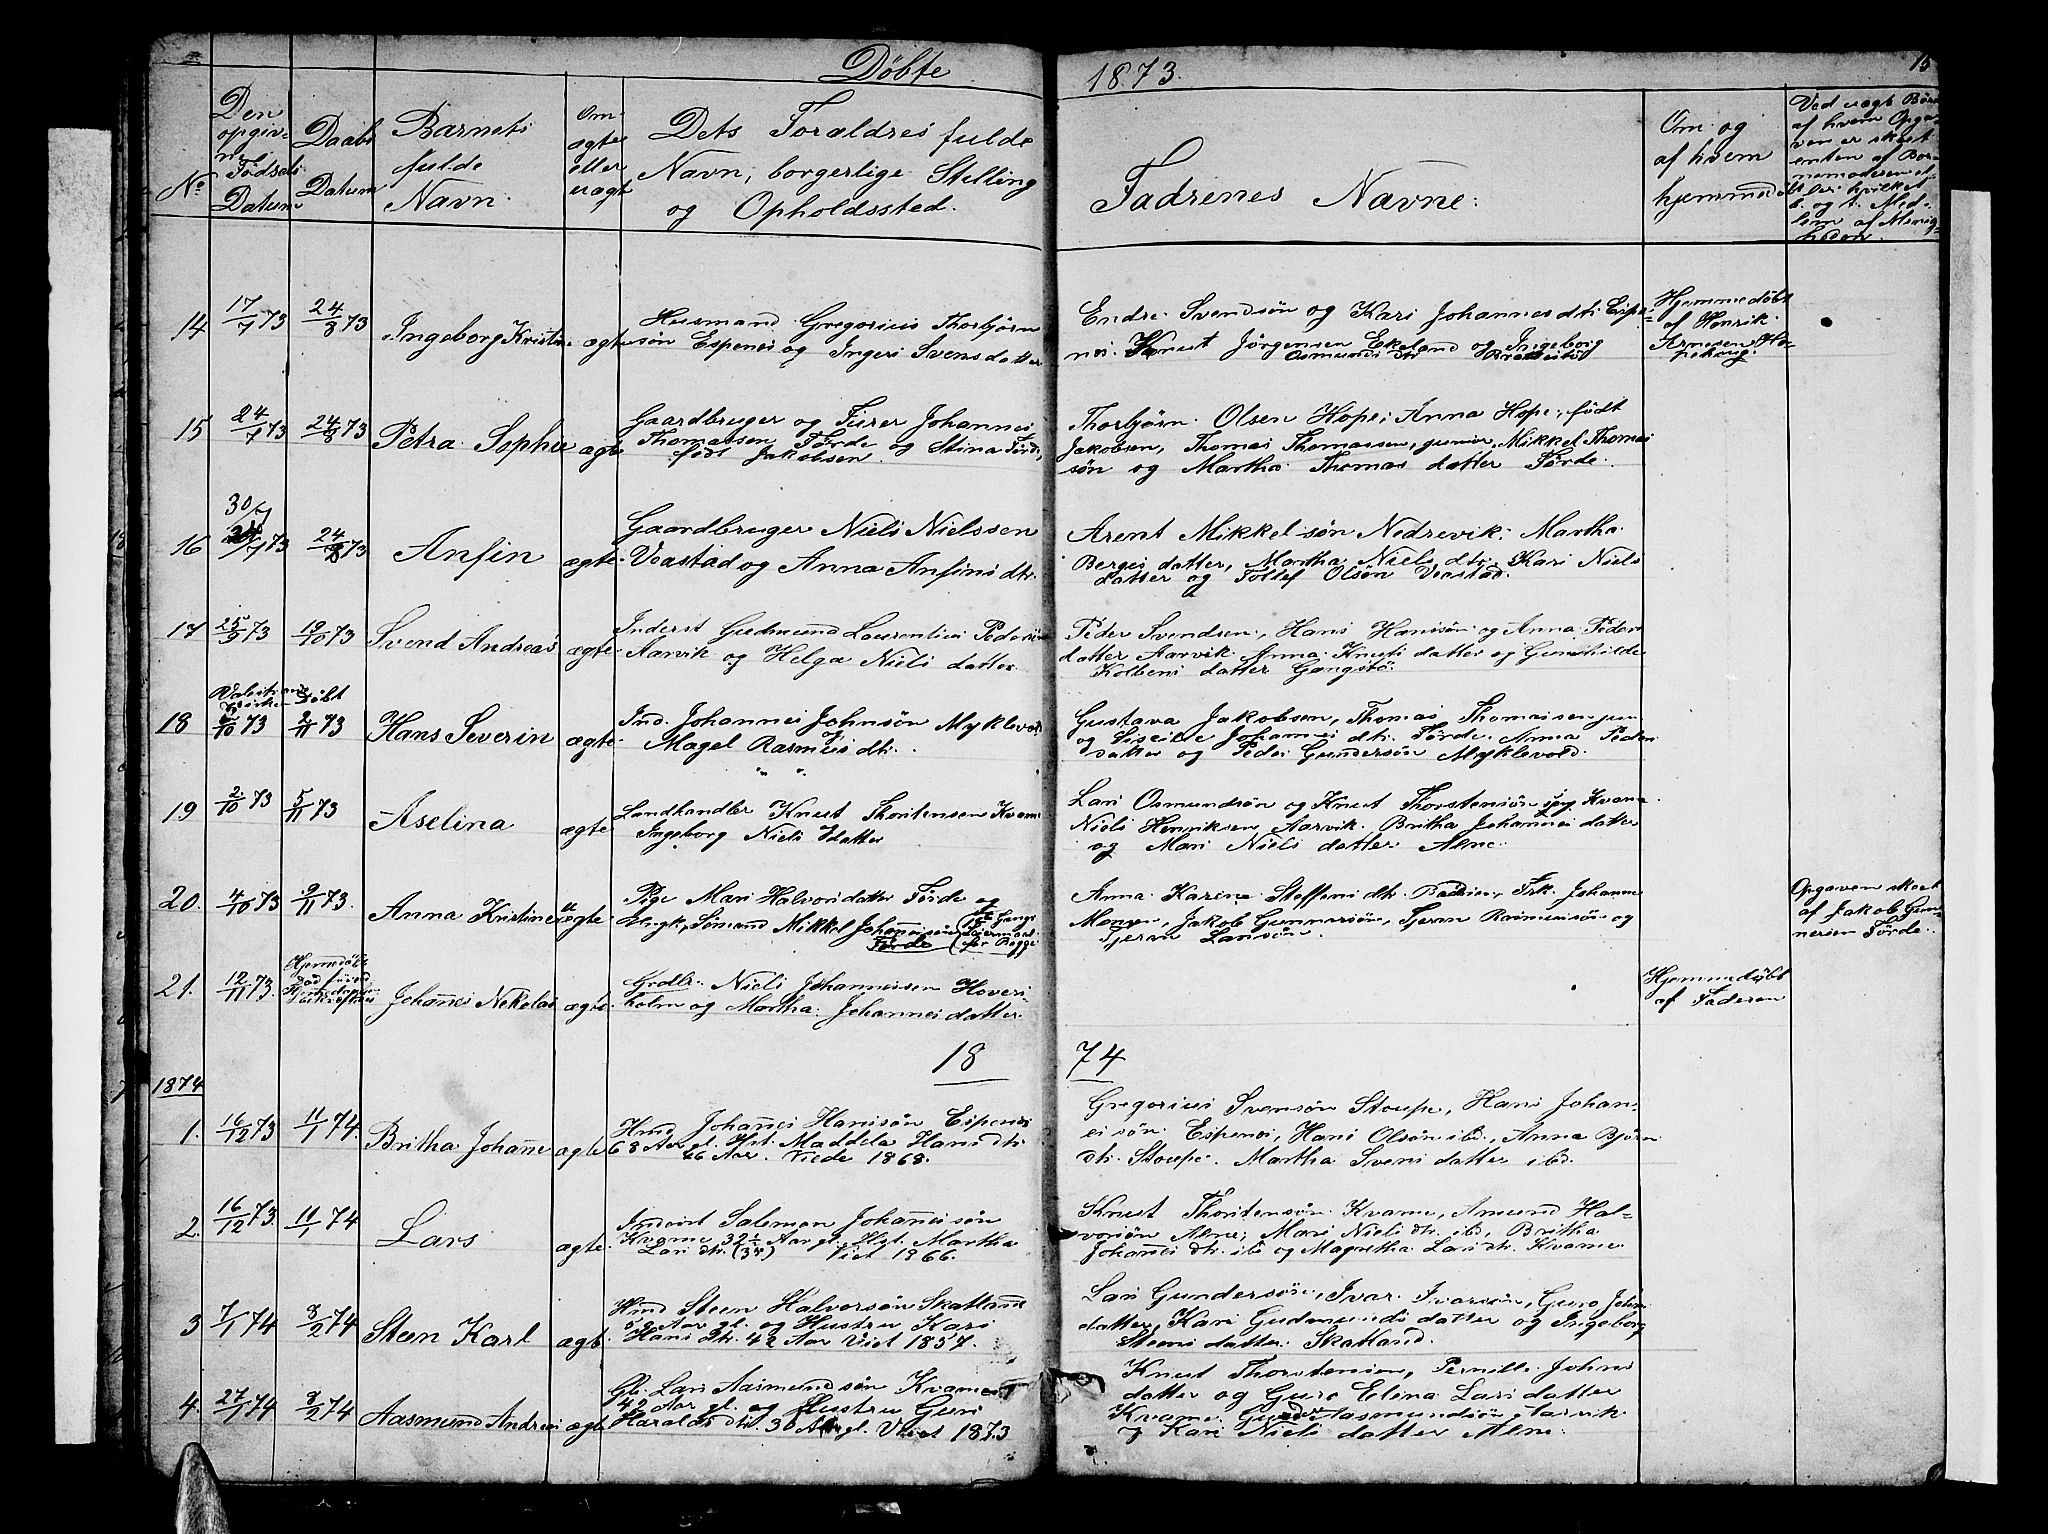 Döbte
1873.
15
No
Den opgivne Födsels Datum
Daabs Datum
Barnets fulde Navn.
Om ægte eller uægte
Dets Forældres fulde
Navn, borgerlige Stilling
og Opholdssted.
Fadrenes Navne:
Om og
af hvem
hjemmedöbt
Ved uægte Börn
af hvem Opga-
ven er skeet
14 17/7 73 24/8 73 Ingeborg Kristine ægte
Husmand Gregorius Thorbjörn
sön Espenes og Ingeri Svensdatter
Endre Svendsön og Kari Johannesdtr. Espe-
nes. Knut Jörgensen Ekeland og Ingeborg
Osmunds dtr
Hjemmedöbt
af Henrik
Arnesen
15 24/7 73 24/8 73 Petra Sophie ægte
Gaardbruger og Furer Johannes
Thomassen Förde og Stina Förde,
født Jakobsen.
Thorbjörn Olsen Hope, Anna Hope, født
Jakobsen, Thomas Thomassen, junior, Mikkel Thomas
sön og Martha Thomas datter Förde.
16 30/7 24/7 73 24/8 73 Anfin ægte
Gaardbruger Niels Nielssen
Vaastad og Anna Anfinsdtr.
Arent Mikkelsön Nedrevik, Martha
Berges datter, Martha Niels dtr. Kari Niels
datter og Tollef Olsön Vaastad.
17 25/9 73 19/10 73 Svend Andreas ægte
Inderst Gudmund Laurentius Pedersön
Aarvik og Helga Niels datter
Peder Svendsen, Hans Hansön og Anna Peders
datter Aarvik. Anna Knuts datter og Gunhilde
Kolbens datter Gangstö.
18 /10 73 2/11 73 Hans Severin ægte
Ind. Johannes Johnsön Myklevold
og
Magel Rasmus dtr.
Gustava Jakobsen, Thomas Thomassen jun
og Johannes dtr. Förde. Anna Peders
datter og Peder Gundersön Myklevold.
19 2/10 73 5/11 73 Aselina ægte
Landhandler Knut Thorstensen Kvame
Ingeborg Niels datter
Lars Osmundsön og Knut Thorstensön Kvame
Niels Henriksen Aarvik. Britha Johannes datter
og Mari Niels datter Alne.
20. 4/10 73 9/11 73. Anna Kristine uægte
Pige Mari Halvors datter Förde og
Ungk, Sömand Mikkel Johannessön
Förde
Anna Karine Steffens dtr. Frk. Johanne
Monsen, Jakob Gunnarsön, Tjeran Rasmussön og
Tjeran Larsön.
Opgaven skeet
af Jakob Gun-
nersen Förde.
21. 12/11 73. Johannes Nekolai ægte
Grdbr. Niels Johannessen Hovers-
holm og Martha Johannes datter
Hjemmedöbt
af Faderen
18 74
1874
1. 16/12 73 11/1 74. Britha Johanne ægte
Hmd Johannes Hansön Espenes
68 Aar gl. Hst. Maddela Hansdtr
46 Aar. Viede 1868.
Gregorius Svensön Stoupe, Hans Johan-
essön Espenes, Hans Olsön ibd., Anna Bjørn
dtr. Stoupe. Martha Svens datter ibd.
2. 16/12 73. 11/1 74 Lars ægte
Inderst Salemon Johannessön
Kvame 32½ Aar gl. Hst. Martha
Lars dtr. (34) Viet 1866.
Knut Thorstensön Kvame, Amund Hal-
vorsön Alne, Mari Niels dtr. ibd, Britha
Johannes dtr. ibd og Magretha Lars dtr. Kvame.
3 7/1 74 8/2 74 Steen Karl ægte
Hmd Steen Halvorsön Skatland
52 Aar gl. og Hustru Kari
Hans dtr. 42 Aar Viet 1857.
Lars Gundersön, Ivar Ivarsön, Guro Johns
datter, Kari Gudmunds datter og Ingeborg
Steens datter Skatland.
4. 27/1 74 8/2 74 Aasmund Andreas ægte
Gb. Lars Aasmundsön Kvame
42 Aar gl. og Hustru Guri
Haralds dtr. 30 Aar gl. Viet 1873
Knut Thorstensen, Pernille Johns
datter og Guro Elina Lars datter
Kvame Gunder Aasmundsön Aarvik
og Kari Niels datter Alne.